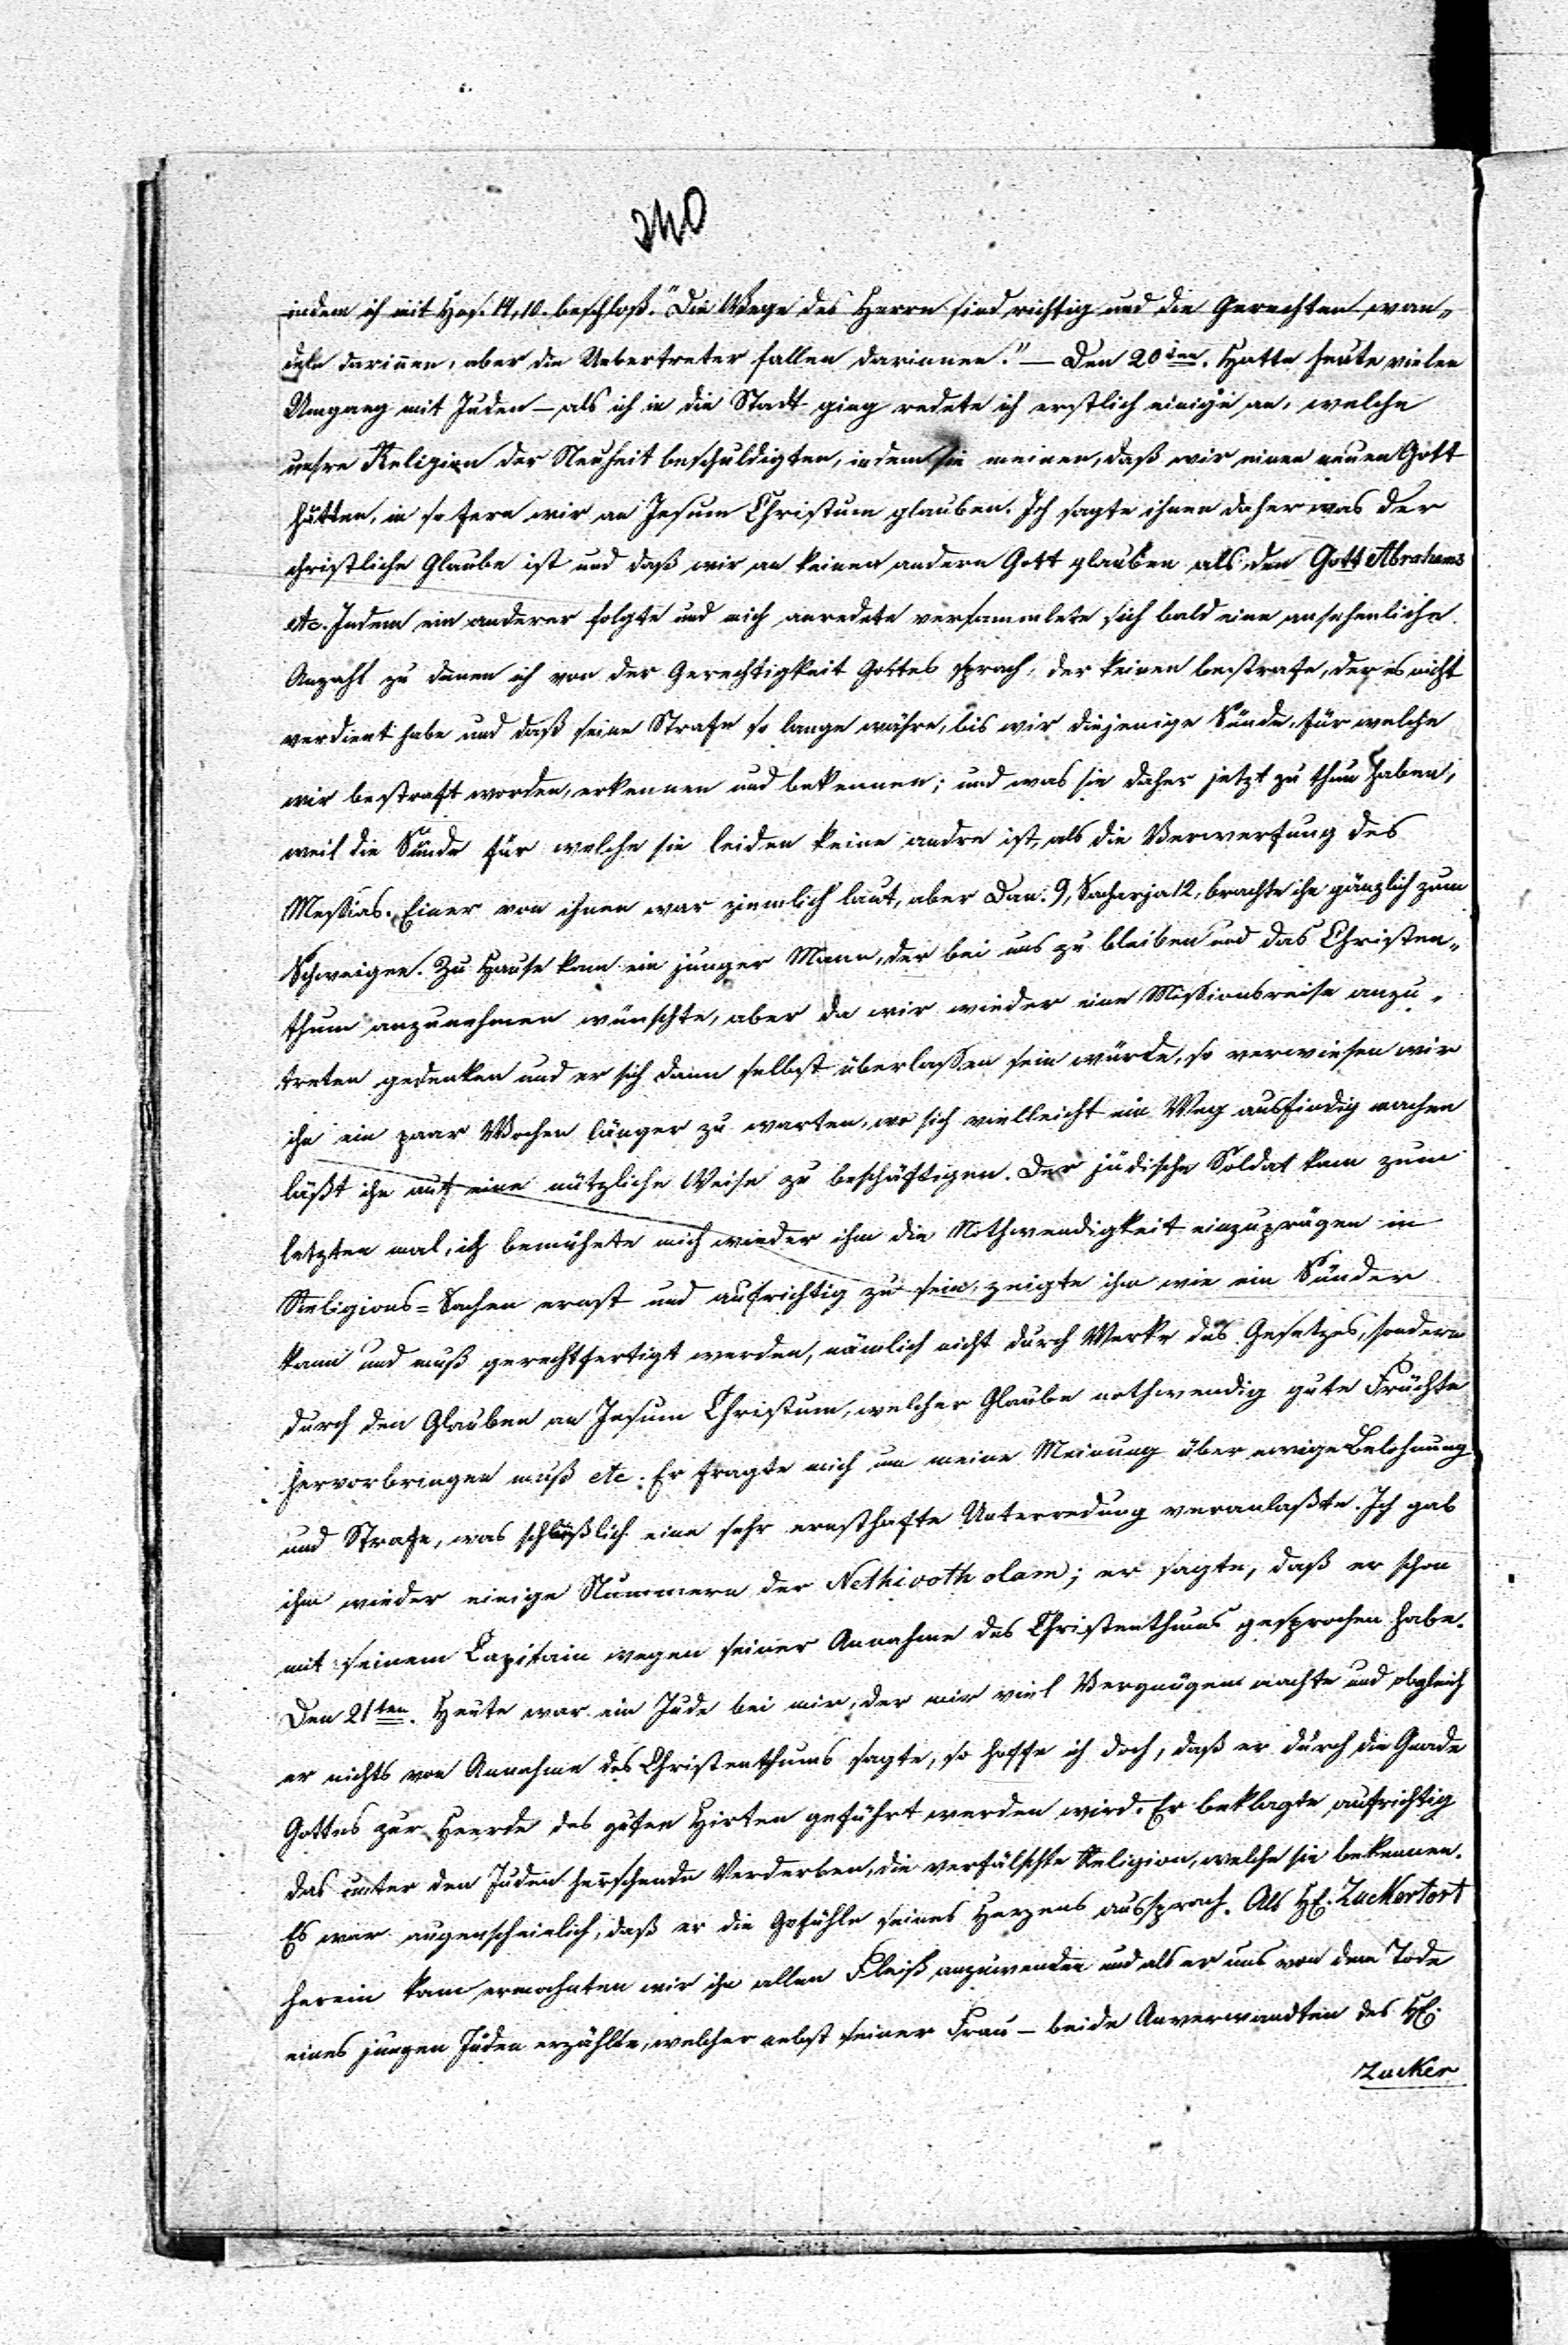 240
indem ich mit Hos. 14,10. beschloß. "Die Wege des Herrn sind richtig und die Gerechten wan„
deln darinnen, aber die Uebertreter fallen darinnen." — Den 20ten. Hatte heute vielen
Umgang mit Juden — als ich in die Stadt ging redete ich erstlich einige an, welche
unsre Religion der Neuheit beschuldigten, indem sie meinen, daß wir einen neuen Gott
hätten, in so fern wir an Jesum Christum glauben. Ich sagte ihnen daher was der
christliche Glaube ist und daß wir an keinen andern Gott glauben als den Gott Abrahams
etc. Indem ein anderer folgte und mich anredete versammlete sich bald eine ansehenliche
Anzahl zu denen ich von der Gerechtigkeit Gottes sprach, der keinen bestrafe, der es nicht
verdient habe und daß seine Strafe so lange währe, bis wir diejenige Sünde, für welche
wir bestraft worden, erkennen und bekennen; und was sie daher jetzt zu thun haben,
weil die Sünde für welche sie leiden keine andre ist, als die Verwerfung des
Messias. Einer von ihnen war ziemlich laut, aber Dan. 9, Sacharja 12, brachte ihn gänzlich zum
Schweigen. Zu Hause kam ein junger Mann, der bei uns zu bleiben und das Christen„
thum anzunehmen wünschte, aber da wir wieder eine Missionsreise anzu„
treten gedenken und er sich dann selbst überlassen sein würde, so verwiesen wir
ihn ein paar Wochen länger zu warten, wo sich vielleicht ein Weg ausfindig machen
läßt ihn auf eine nützliche Weise zu beschäftigen. Der jüdische Soldat kam zum
letzten mal, ich bemühete mich wieder ihm die Nothwendigkeit einzuprägen in
Religions=Sachen ernst und aufrichtig zu sein, zeigte ihm wie ein Sünder
kann und muß gerechtfertigt werden, nämlich nicht durch Werke des Gesetzes, sondern
durch den Glauben an Jesum Christum, welcher Glaube nothwendig gute Früchte
hervorbringen muß etc. Er fragte mich um meine Meinung über ewige Belohnung
und Strafe, was schließlich eine sehr ernsthafte Unterredung veranlaßte. Ich gab
ihm wieder einige Nummern der Nethivoth olam; er sagte, daß er schon
mit seinem Capitain wegen seiner Annahme des Christenthums gesprochen habe.
Den 21ten. Heute war ein Jude bei mir, der mir viel Vergnügen machte und obgleich
er nichts von Annahme des Christenthums sagte, so hoffe ich doch, daß er durch die Gnade
Gottes zur Heerde des guten Hirten geführt werden wird. Er beklagte aufrichtig
das unter den Juden herrschende Verderben, die verfälschte Religion, welche sie bekennen.
Es war augenscheinlich, daß er die Gefühle seines Herzens aussprach. Als H. Zuckertort
herein kam ermahnten wir ihn allen Fleiß anzuwenden und als er uns von dem Tode
eines jungen Juden erzählte, welcher nebst seiner Frau — beide Anverwandten des H.
Zucker